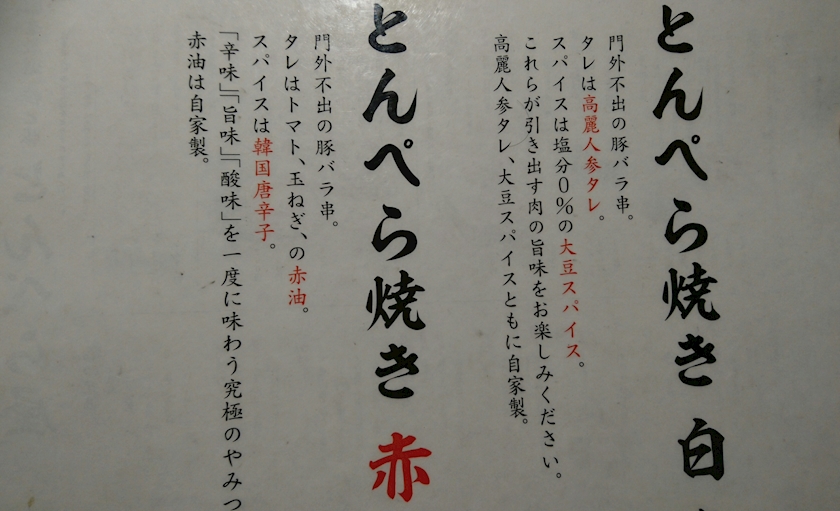 とんぺら焼き 白
門外不出の豚バラ串。
タレは高麗人参タレ。
スパイスは塩分0%の大豆スパイス。
これらが引き出す肉の旨味をお楽しみください。
高麗人参タレ、大豆スパイスともに自家製。
とんぺら焼き 赤
門外不出の豚バラ串。
タレはトマト、玉ねぎ、の赤油。
スパイスは韓国唐辛子。
「辛味」「旨味」「酸味」を一度に味わう究極のやみつ
赤油は自家製。